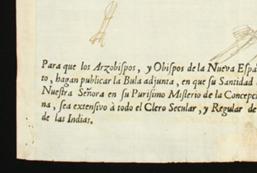 Para que los Arzobispos, y Obispos de la Nueva Espa
to, hagan publicar la Bula adjunta, en que su Santidad
Nuestra Señora en su Purisimo Misterio de la Concepci
na, sea extensivo à todo el Clero Secular, y Regular de
de las Indias.